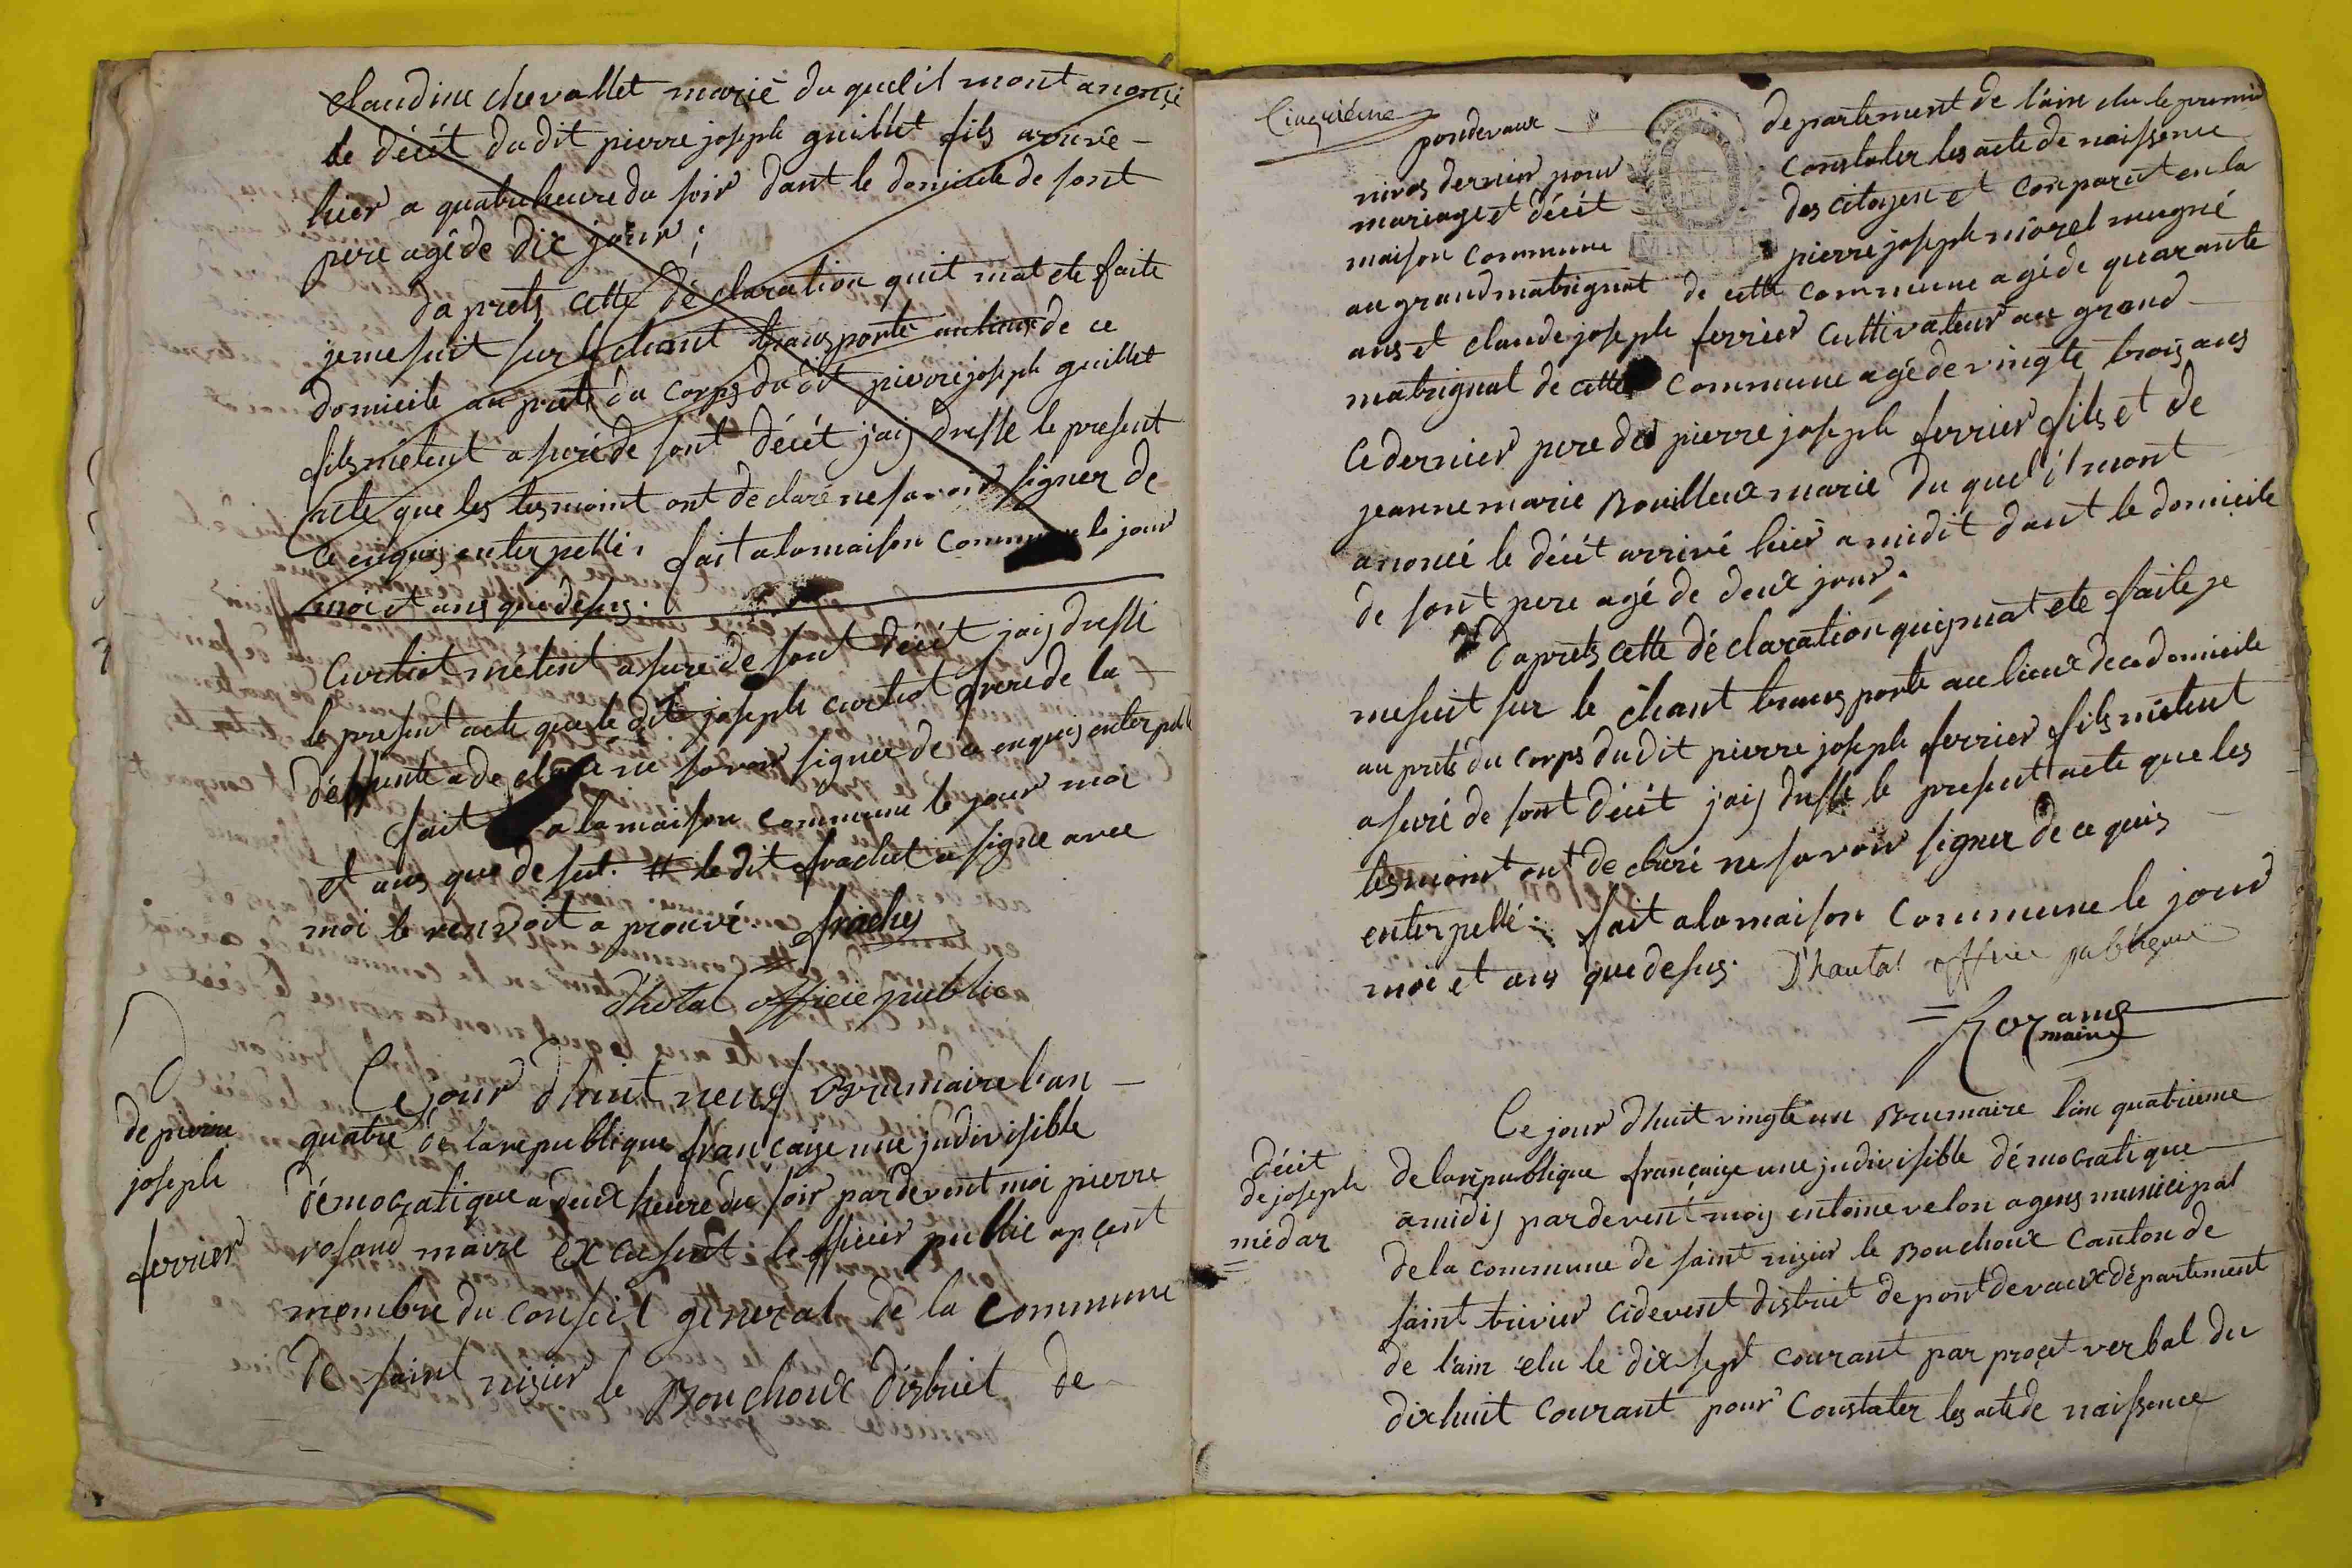 claudine chevallet marie du quel il mont anoncé
le décét dudit pierre joseph guillet fils arrivé
hier a quatre heure du soir dant le domicile de sont
pere agé de dix jour ;
da prets cette déclaration quit mat ete faite
je me suit sur le chant transporte au lieux de ce
domicile au prets du corps du dit pierre joseph guillet
fils métent a suré de sont décét jaij dresse le present
acte que les tesmoint ont declaré ne savoir signer de
ce enquis enterpellé. fait a la maison commune le jour
moi et ans que desus.
Curtiot métent a sure de sont décét jaij dressé
le present acte que le dit joseph curtiot frere de la
deffunte a declaré ne savoir signer de ce enquis enterpellé
fait a la maison commune le jour moi
et ans que de sut. # le dit frachet a signe avec
moi le renvoit a prouvé. frachet
d'hotal officie public
D
de pierre
joseph
ferrier
Ce jour dhuit neuf Brumaire l'an
quatre de la republique française une judivisible
démocratique a deux heure du soir par devent moi pierre
rosand maire ex cusent le officier public apçent
membre du conseil general de la commune
de saint nizier le Bouchoux district de
Cinquiéme
pondevaux
departement de l'ain elu le premier
nivos dernier pour
constater les acte de naissence
mariage et décét
des citoyen et comparut en la
maison commune
MINUTE
pierre joseph morel mugné
au grand matrignat de cette commune agé de quarante
ans et claude joseph ferrier cultivateur au grand
matrignat de cette commune agé de vingte trois ans
Ce dernier pere de pierre joseph ferrier fils et de
jeanne marie Bouilleux marie du quel il mont
anoncé le décét arrivé hier a midit dant le domicile
de sont pere agé de deux jour.
Daprets cette déclaration quij mat ete faite je
me suit sur le chant transporte au lieux de ce domicile
au prets du corps du dit pierre joseph ferrier fils métent
a suré de sont décét j'aij dresse le present acte que les
tesmoint ont declaré ne savoir signer de ce quis
enterpellé. fait a la maison commune le jour
moi et ans que desus. D'hautal officie publique
Rozand
maire
décét
de joseph
médar
Ce jour dhuit vingte un Brumaire l'an quatrieme
de la republique française une judivisible démocratique
a midij par devent moij entoine velon agens municipal
de la commune de saint nizier le Bouchoux canton de
saint trivier cidevent district de pont de vaux département
de l'ain elu le dix sept courant par proçet verbal du
dix huit courant pour constater les acte de naissence